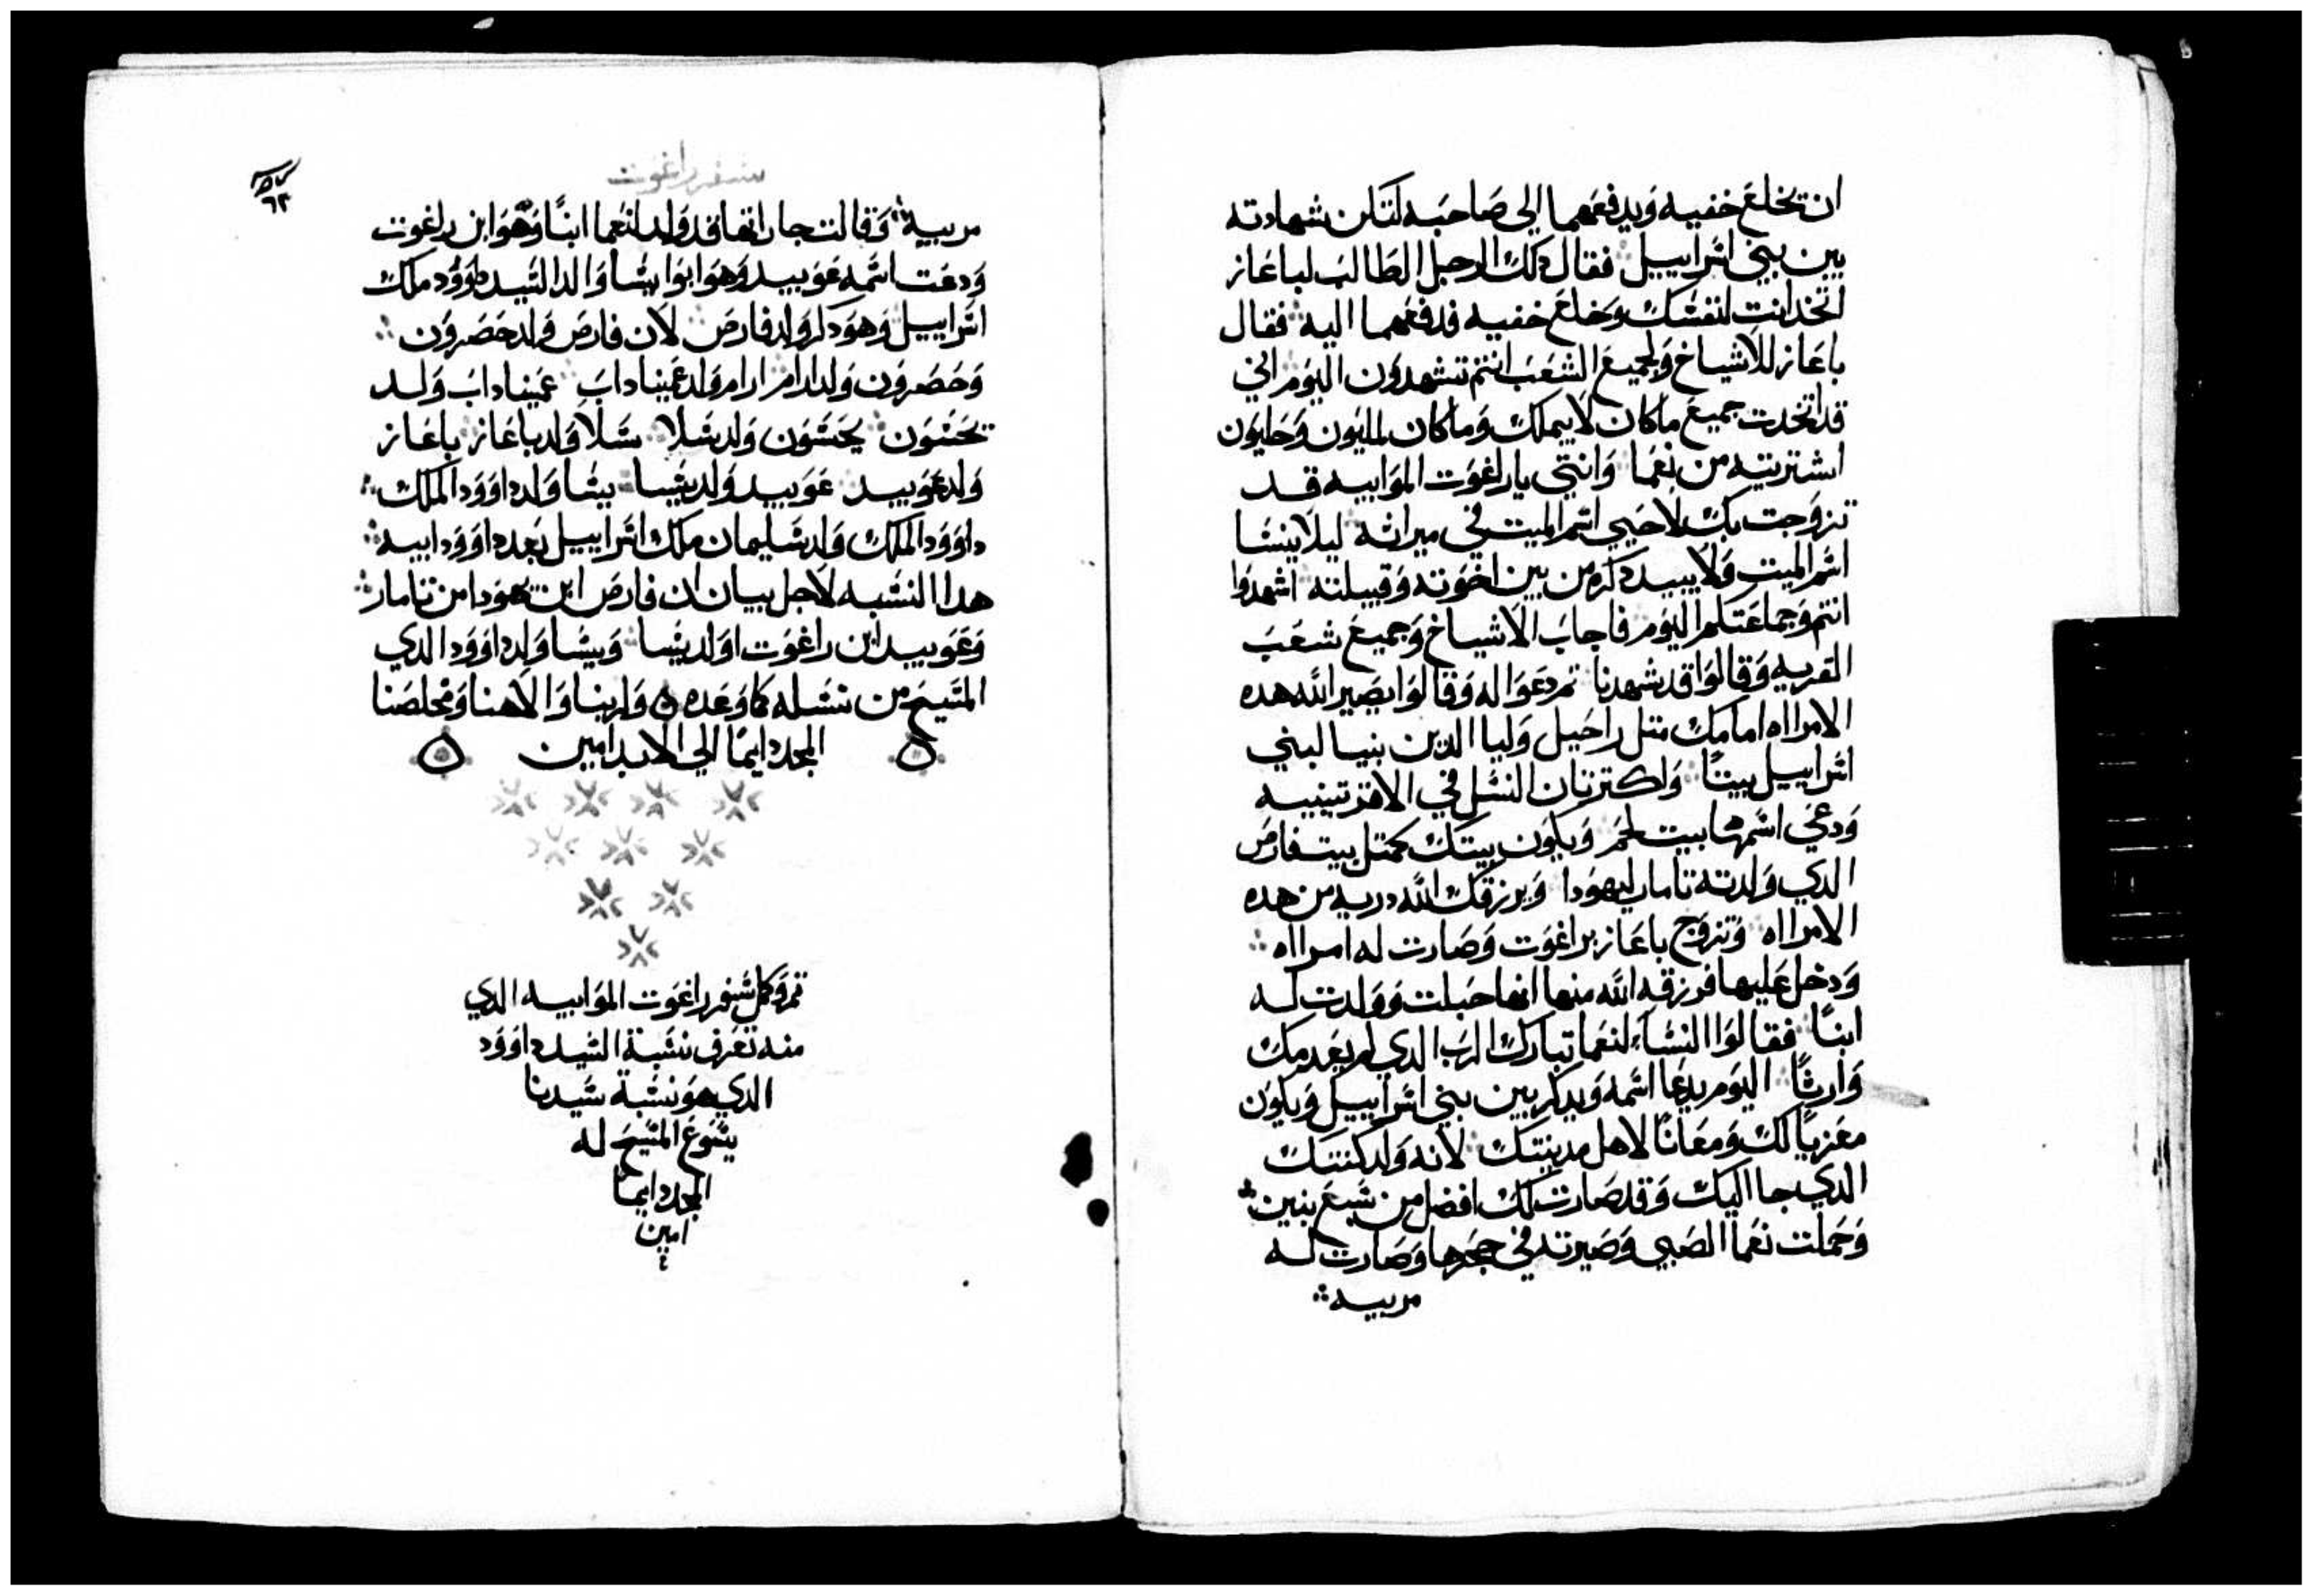 ان تخلع خفيه ويدفعهما الى صاحبه لتكن شهادته
بين بني اسراييل فقال دلك الرجل الطالب لباعاز
اتخد انت لنفسك وخلع خفيه فدفعهما اليه فقال
باعاز للاشياخ ولجميع الشعب انتم تشهدون اليوم اني
قد اتخدت جميع ماكان لايملك وماكان لمليون وحليون
اشتريته من نعما وانتي ياراغوت الموابيه قد
تزوجت بك لاحيي اسم الميت في ميراثه ليلا ينسا
اسم الميت ولا يبيد دكره من بين اخوته وقبيلته اشهدوا
انتم وجماعتكم اليوم فاجاب الاشياخ وجميع شعب
القريه وقالوا قد شهدنا تم دعوا له وقالوا يصير الله هده
الامرااه امامك متل راحيل وليا الدين بنيا لبني
اسراييل بيتا واكترتان النسل في الافرتينيه
ودعي اسمها بيت لحم ويكون بيتك كمتل بيت فارص
الدي ولدته تامار ليهودا ويرزقك الله دريه من هده
الامرااه وتزوج باعاز براغوت وصارت له امرااه
ودخل عليها فرزقه الله منها انها حبلت وولدت له
ابنًا فقالوا النساء لنعما تبارك الرب الدي لم يعدمك
وارثًا اليوم يدعا اسمه ويدكر بين بني اسراييل ويكون
معزيًا لك ومعانًا لاهل مدينتك لانه ولد كنتك
الدي جا اليك وقد صارت لك افضل من سبع بنين
وحملت نعما الصبي وصيرته في حجرها وصارت له
مربيه
سفر راغوت
٦٣
مربيه وقالت جاراتها قد ولد لنعما ابنًا وهو ابن راغوت
ودعت اسمه عوبيد وهو ابو ايشا والد السيد داوود ملك
اسراييل وهو دكر ولد فارص لان فارص ولد حصرون
وحصرون ولد ارام ارام ولد عميناداب عميناداب ولد
نحشون يحشون ولد سلا سلا ولد باعاز باعاز
ولد عوبيد عوبيد ولد يسا يسا ولد داوود الملك
داوود الملك ولد سليمان ملك اسراييل بعد داوود ابيه
هدا النسبه لاجل بيان ان فارص ابن يهودا من تامار
وعوبيد ابن راغوت اولد يسا ويسا ولد داوود الدي
المسيح من نسله كما وعده ولربنا والاهنا ومخلصنا
المجد دايمًا الي الابد امين
تم وكمل سفر راغوت الموابيه الدي
منه تعرف نسبة السيد داوود
الدي هو نسبة سيدنا
يسوع المسيح له
المجد دايما
امين